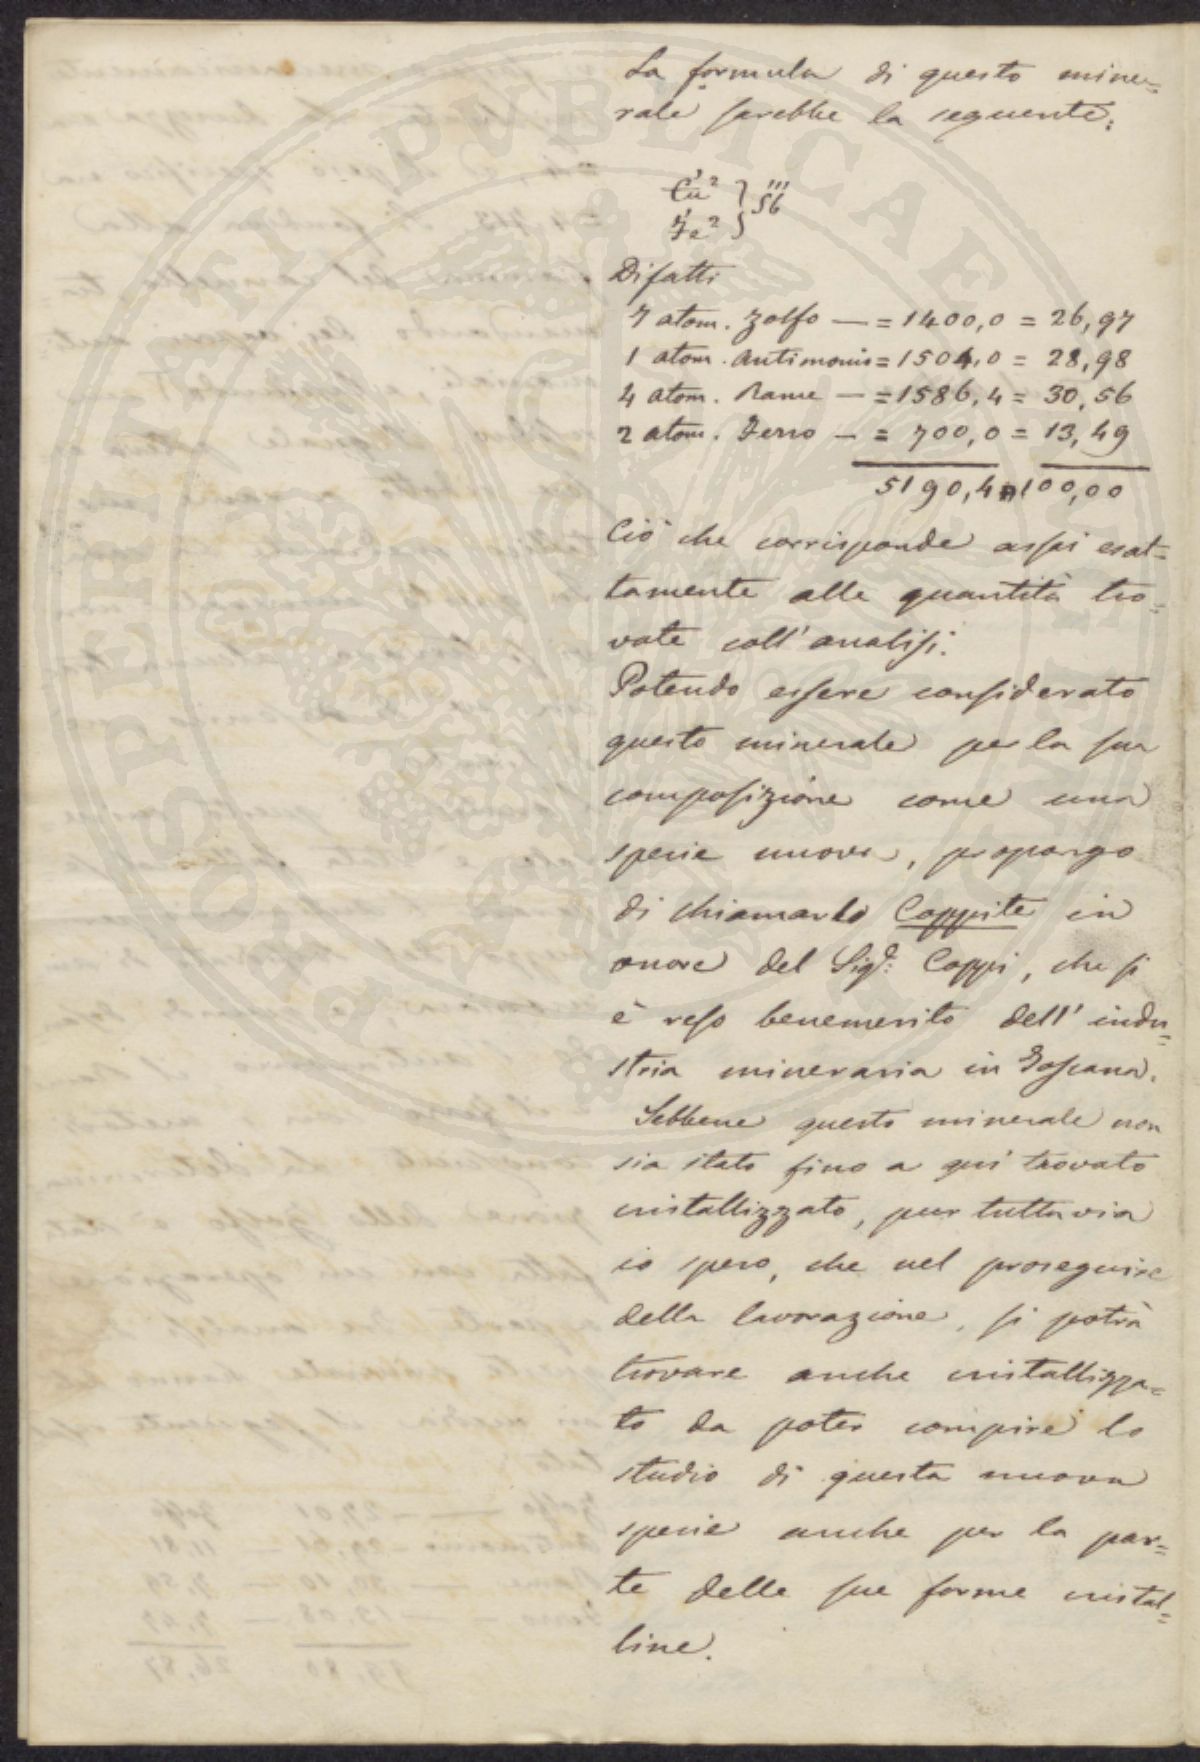 La formula di questo mine=
rale sarebbe la seguente:
Cu'² } Sb'''
Fe'² }
Difatti
7 atom. Zolfo — = 1400,0 = 26,97
1 atom. Antimonio = 1504,0 = 28,98
4 atom. Rame — = 1586,4 = 30,56
2 atom. Ferro — = 700,0 = 13,49
5190,4 = 100,00
Ciò che corrisponde assai esat=
tamente alle quantità tro=
vate coll'analisi.
Potendo essere considerato
questo minerale per la sua
composizione come una
specie nuova, propongo
di chiamarlo Coppite in
onore del Sig.r: Coppi, che si
è reso benemerito dell'indu=
stria mineraria in Toscana.
Sebbene questo minerale non
sia stato fino a qui trovato
cristallizzato, pur tuttavia
io spero, che nel proseguire
della lavorazione, si potrà
trovare anche cristallizza=
to da poter compire lo
studio di questa nuova
specie anche per la par=
te delle sue forme cristal=
line.
PROSPERITATI PUBLICAE